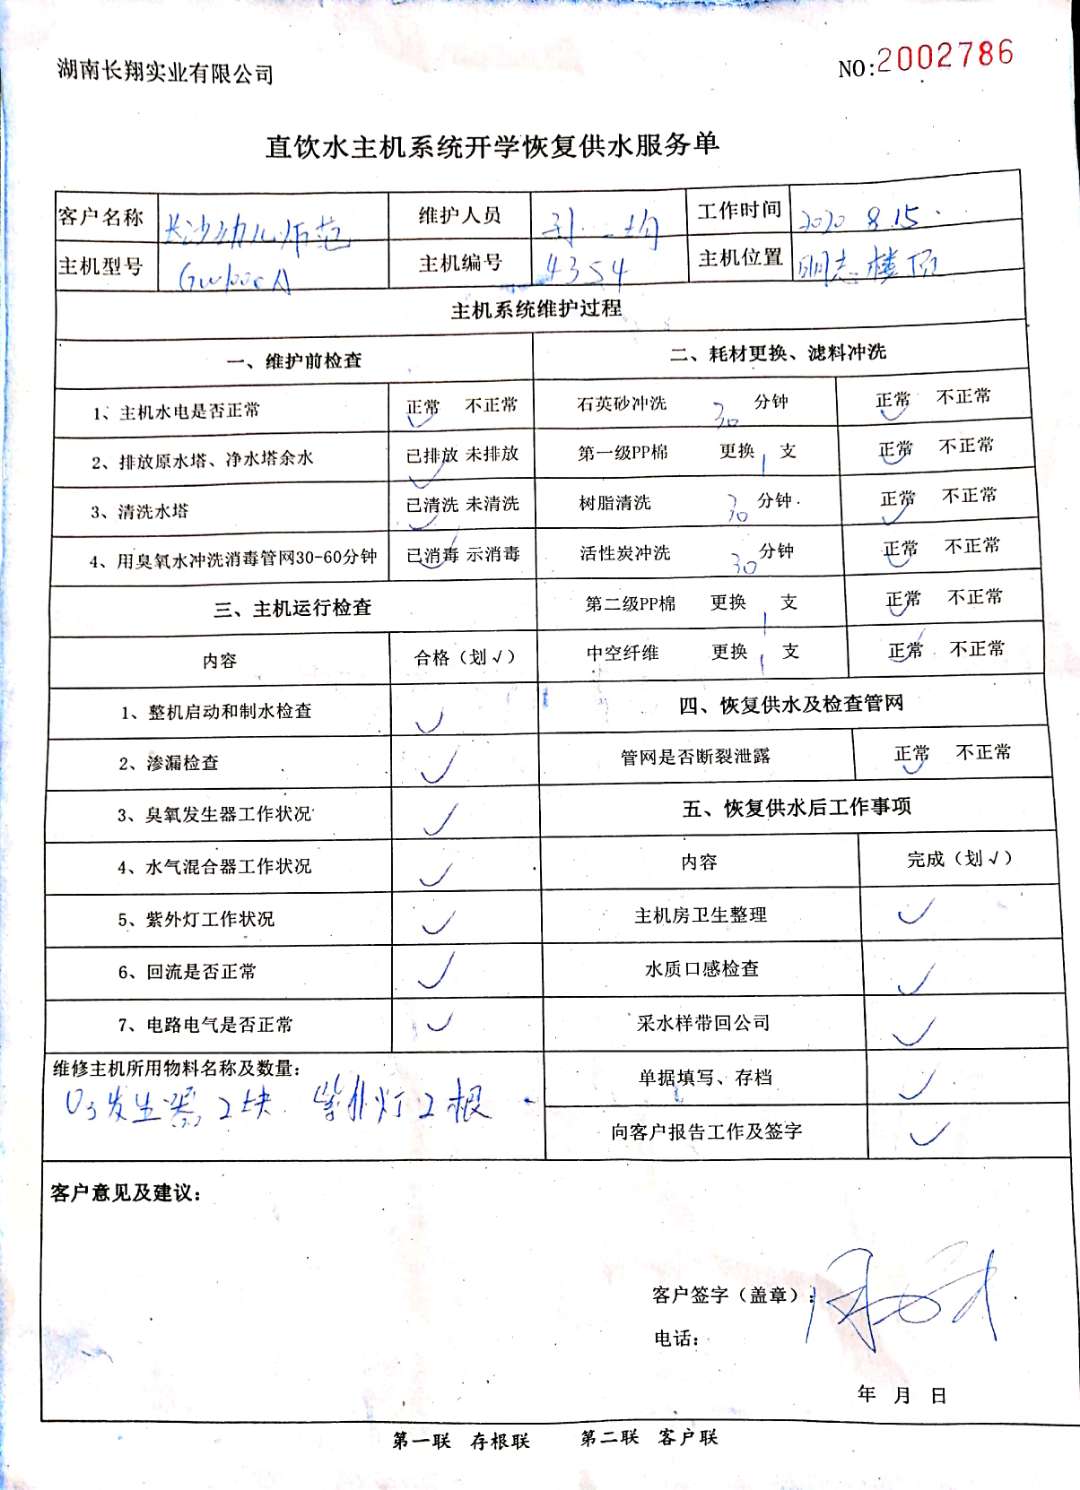 湖南长翔实业有限公司
NO:2002786
直饮水主机系统开学恢复供水服务单
客户名称 长沙幼儿师范 维护人员 工作时间 2020 8.15.
主机型号 主机编号 4354 主机位置 明志楼顶
主机系统维护过程
一、维护前检查 二、耗材更换、滤料冲洗
1、主机水电是否正常 正常 不正常 石英砂冲洗 30 分钟 正常 不正常
2、排放原水塔、净水塔余水 已排放 未排放 第一级PP棉 更换 1 支 正常 不正常
3、清洗水塔 已清洗 未清洗 树脂清洗 30 分钟 正常 不正常
4、用臭氧水冲洗消毒管网30-60分钟 已消毒 示消毒 活性炭冲洗 30 分钟 正常 不正常
三、主机运行检查 第二级PP棉 更换 1 支 正常 不正常
内容 合格（划√） 中空纤维 更换 1 支 正常 不正常
1、整机启动和制水检查 ✓ 四、恢复供水及检查管网
2、渗漏检查 ✓ 管网是否断裂泄露 正常 不正常
3、臭氧发生器工作状况 ✓ 五、恢复供水后工作事项
4、水气混合器工作状况 ✓ 内容 完成（划√）
5、紫外灯工作状况 ✓ 主机房卫生整理 ✓
6、回流是否正常 ✓ 水质口感检查 ✓
7、电路电气是否正常 ✓ 采水样带回公司 ✓
维修主机所用物料名称及数量： 单据填写、存档 ✓
O3发生器2块 紫外灯2根 向客户报告工作及签字 ✓
客户意见及建议：
客户签字（盖章）：
电话：
年 月 日
第一联 存根联 第二联 客户联